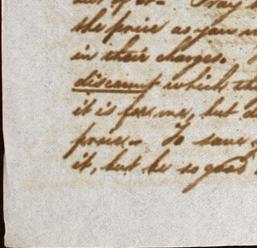 the price as you
in their charges.
discount which the
it is for me, but
prices. To save
it, but be so good